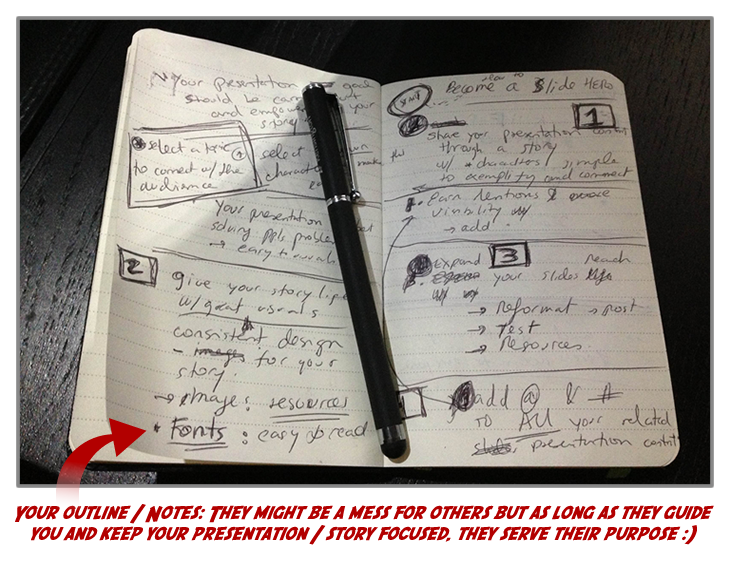 Your presentation goal
should be
and empower your
story
select a topic
to connect w/ the
audience
select
character
Your presentation
solving ppls problem
→ easy to
2
give your story life
w/ great visuals
consistent design
- images for your
story
→ images: resources
* Fonts: easy to read
How to
Become a Slide HERO
1
share your presentations content
through a story
w/ characters / simple
to exemplify and connect
earn mentions &
visibility
→ add
3
Expand reach
your slides
→ Reformat → post
→ Test
→ Resources
add @ & #
TO All your related
presentation content
YOUR OUTLINE / NOTES: THEY MIGHT BE A MESS FOR OTHERS BUT AS LONG AS THEY GUIDE
YOU AND KEEP YOUR PRESENTATION / STORY FOCUSED, THEY SERVE THEIR PURPOSE :)